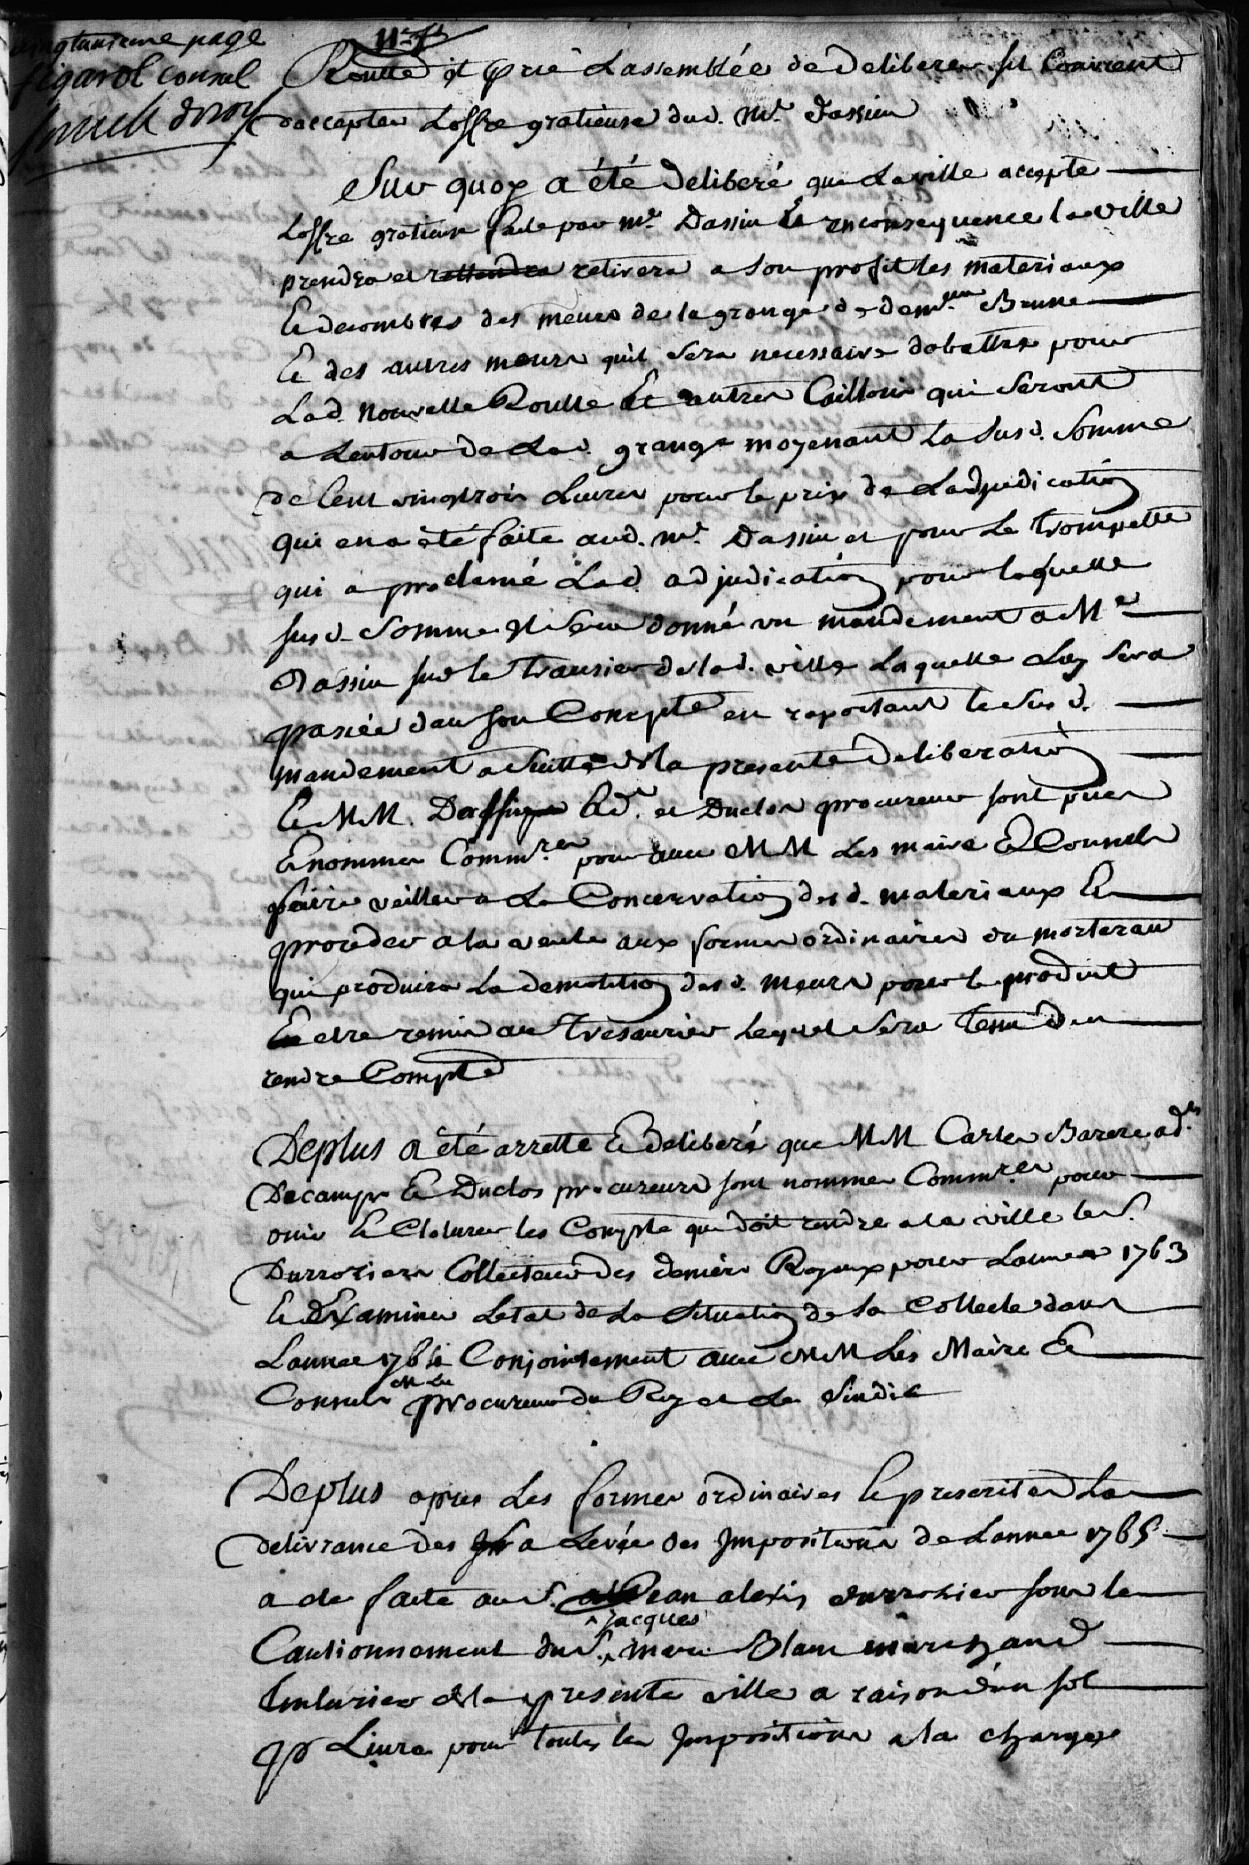 vingtunieme page
figarol consul
Routte et prie Lassemblée de Deliberer sil Convient
daccepter Loffre gratieuse dud. mr. dassieu
Sur quoy a été deliberé que La ville accepte
Loffre gratieuse faite par mr. Dassieu Et en consequence la ville
prendra et retirera a son profit les materiaux
Et decombres des meurs de la grange de demlle Brune
Et des autres meurs quil sera necessaire dabattre pour
Lad. nouvelle Routte Et autres Cailloux qui seront
a Lentour de Lad. grange moyenant La susd. Somme
de Cent vingt trois Livres pour le prix de Ladjudication
qui en a été faite aud. mr. Dassieu et pour Le trompette
qui a proclamé Lad. adjudication pour laquelle
susd. Somme Il sera donné un mandement a Mr
Dassieu sur le tresorier de lad. ville Laquelle Luy sera
passée dans son Compte en raportant le susd.
mandement a suitte de la presente deliberation
Et MM. ad. et Duclos procureur sont pries
Et nommes Commres pour avec MM Les maire Et Consuls
faire veiller a La Concervation desd. materiaux Et
proceder a la vente aux formes ordinaires du morterau
qui produira La demolition desd. meurs pour le produit
Etre remis au tresaurier Lequel sera tenu den
rendre Compte
Deplus a été arretté Et deliberé que MM Carles Barere ads.
Decamps Et Duclos procureurs sont nommes Commres pour
ouir Et Cloturer les Compte que doit rendre a la ville le s.
Durrosier Collecteur des deniers Royaux pour Lannée 1763
Et Examiner Letat de La situation de sa Collecte dans
Lannée 1764 Conjointement avec MM Les Maire Et
Consuls M Le procureur du Roy et Le Sindic
Deplus apres Les formes ordinaires Et prescrites La
delivrance des La Levée des Impositions de Lannée 1765
a été faite au s. Jean alexis durrosier sous le
Cautionnement du s. Jacques marc Blanc marchand
teinturier de la presente ville a raison dun sol
p Livre pour toutes les Impositions a la charge